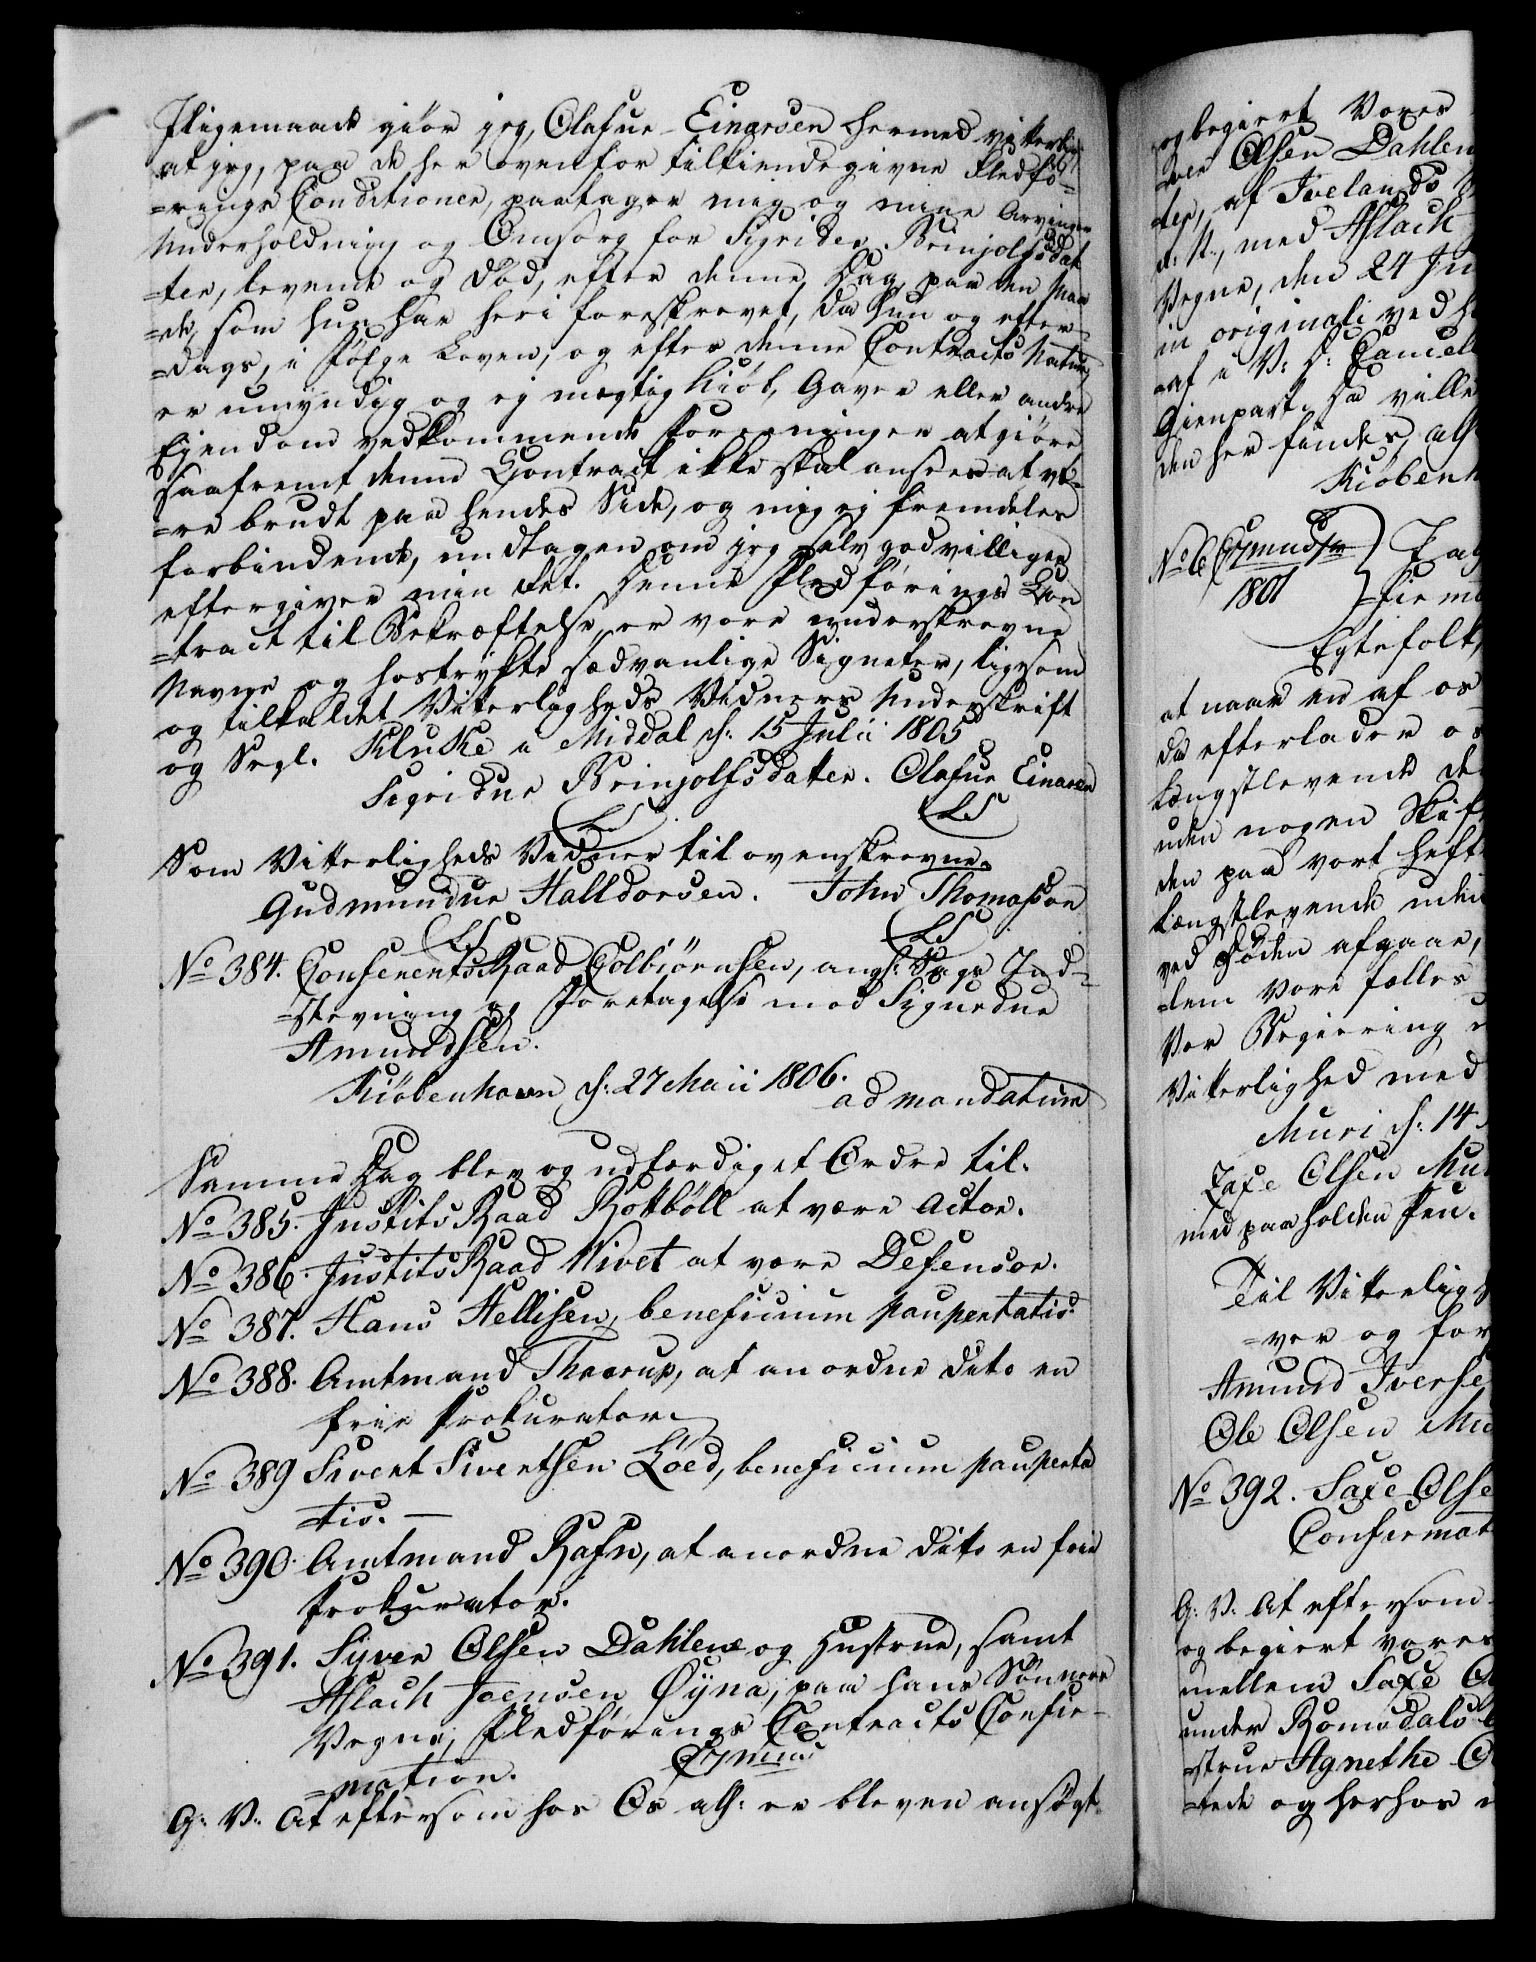 Iligemaade giör jeg, Olafur Einarsen hermed vitterligt
at jeg, paa de her ovenfor tilkiendegivne Fledfö-
=rings Conditioner, paatager mig og mine Arvinger
Underholdning og Omsorg for Sigrider Brinjolfsdat
=ter, levende og död, efter denne Dag paa den Maa
=de, som hun har heri foreskrevet, da hun og efter-
=dags, i Fölge Loven, og efter denne Contracts Natur,
er umyndig og ej mægtig Kiöb, Gaver eller andre
Ejendom vedkommende Foreeninger at giöre
saafremt denne Contract ikke skal ansees at væ-
=re brudt paa hendes Side, og mig ej fremdeles
forbindende, undtagen om jeg selv godvilligen
eftergiver min Ret. Denne Fledförings Con
=tract til Bekræftelse er vore underskrevne
Navne og hostrykte sædvanlige Signeter, ligesom
og tilkaldet Vitterligheds Vidners Underskrift
og Segl. Kluke a Middal d: 15 Julii 1805
Sigridur Brinjolfsdatter. Olafur Einarsen
LS LS
Som Vitterligheds Vidner til ovenskrevne.
Gudmundur Halldorsen. John Thomasson
LS LS
No 384. ConferentsRaad Colbiörnsen, ang: Sags Ind-
=stevning og Foretagelse mod Sigurdur
Amundsen.
Kiöbenhavn d: 27 Maii 1806.
ad mandatum
Samme Dag blev og udfærdiget Ordre til.
No 385. JustitsRaad Rottböll at være Actor.
No 386. JustitsRaad Wivet at være Defensor.
No 387. Hans Hellisen, beneficium paupertatis.
No 388. Amtmand Thaarup, at anordne dito en
frie Prokurator.
No 389 Sivert Sivertsen Löed, beneficium pauperta
=tis. —
No 390. Amtmand Rafn, at anordne dito en frie
Prokurator.
No 391. Syver Olsen Dahlene og Hustrue, samt
Aslach Joensen Øyna, paa hans Sönners
Vegne, Fledförings Contracts Confir-
=mation.
G: V: At eftersom hos Os all: er bleven ansögt
og begiert Vores
=ver Olsen Dahlen
=ter, af Ivelands
med Aslach
Vegne, den 24
in originali ved
=af i V: D: Cancell
Gienpart. Da ville
den her findes, all
Kiöbenh
1801
Egtefolk,
at naar en af os
da efterlader
længstlevende de
uden nogen Skif
den paa vort
længstlevende uden
ved Döden afgaar,
=lem vore fælles
Vor Begiering
Vitterlighed med
Muri d: 14
Saxe Olsen
med paaholden Pen.
Til Vitterlig
=ver og for
Amund Iverse
Ole Olsen
No 392. Saxe Olse
Confirmat
G: V: At eftersom
og begiert vores
mellem Saxe
under Romsdals
=strue Agnethe
=tede og herhos